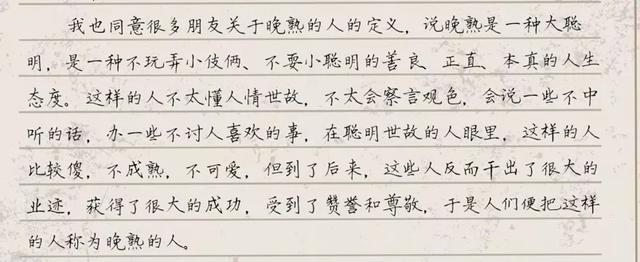 我也同意很多朋友关于晚熟的人的定义，说晚熟是一种大聪
明，是一种不玩弄小伎俩、不耍小聪明的善良、正直、本真的人生
态度。这样的人不太懂人情世故，不太会察言观色，会说一些不中
听的话，办一些不讨人喜欢的事，在聪明世故的人眼里，这样的人
比较傻，不成熟，不可爱，但到了后来，这些人反而干出了很大的
业迹，获得了很大的成功，受到了赞誉和尊敬，于是人们便把这样
的人称为晚熟的人。